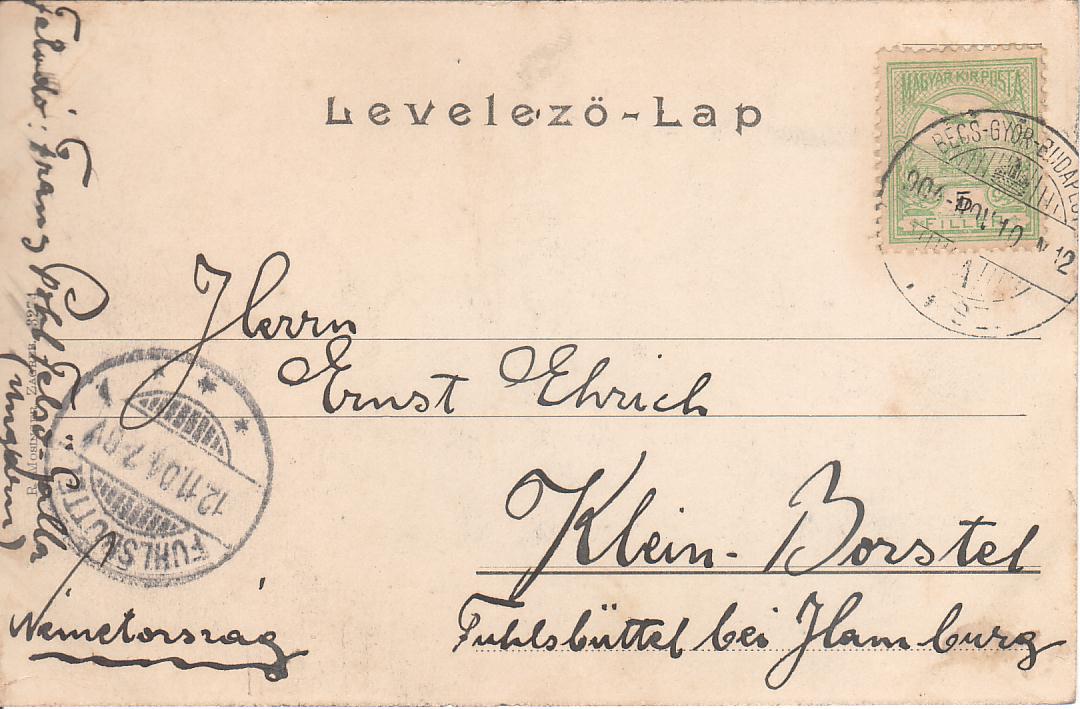 Levelező-Lap
MAGYAR KIR. POSTA
5
FILLÉR
BÉCS-GYŐR-BUDAPEST
904 NOV 10 N 12
Herrn
Ernst Ehrich
Klein-Borstel
Fuhlsbüttel bei Hamburg
Németország
Feladó: Franz Pohl Felső-Galla
(Ungarn)
FUHLSBÜTTEL
12.11.04. 7-8V